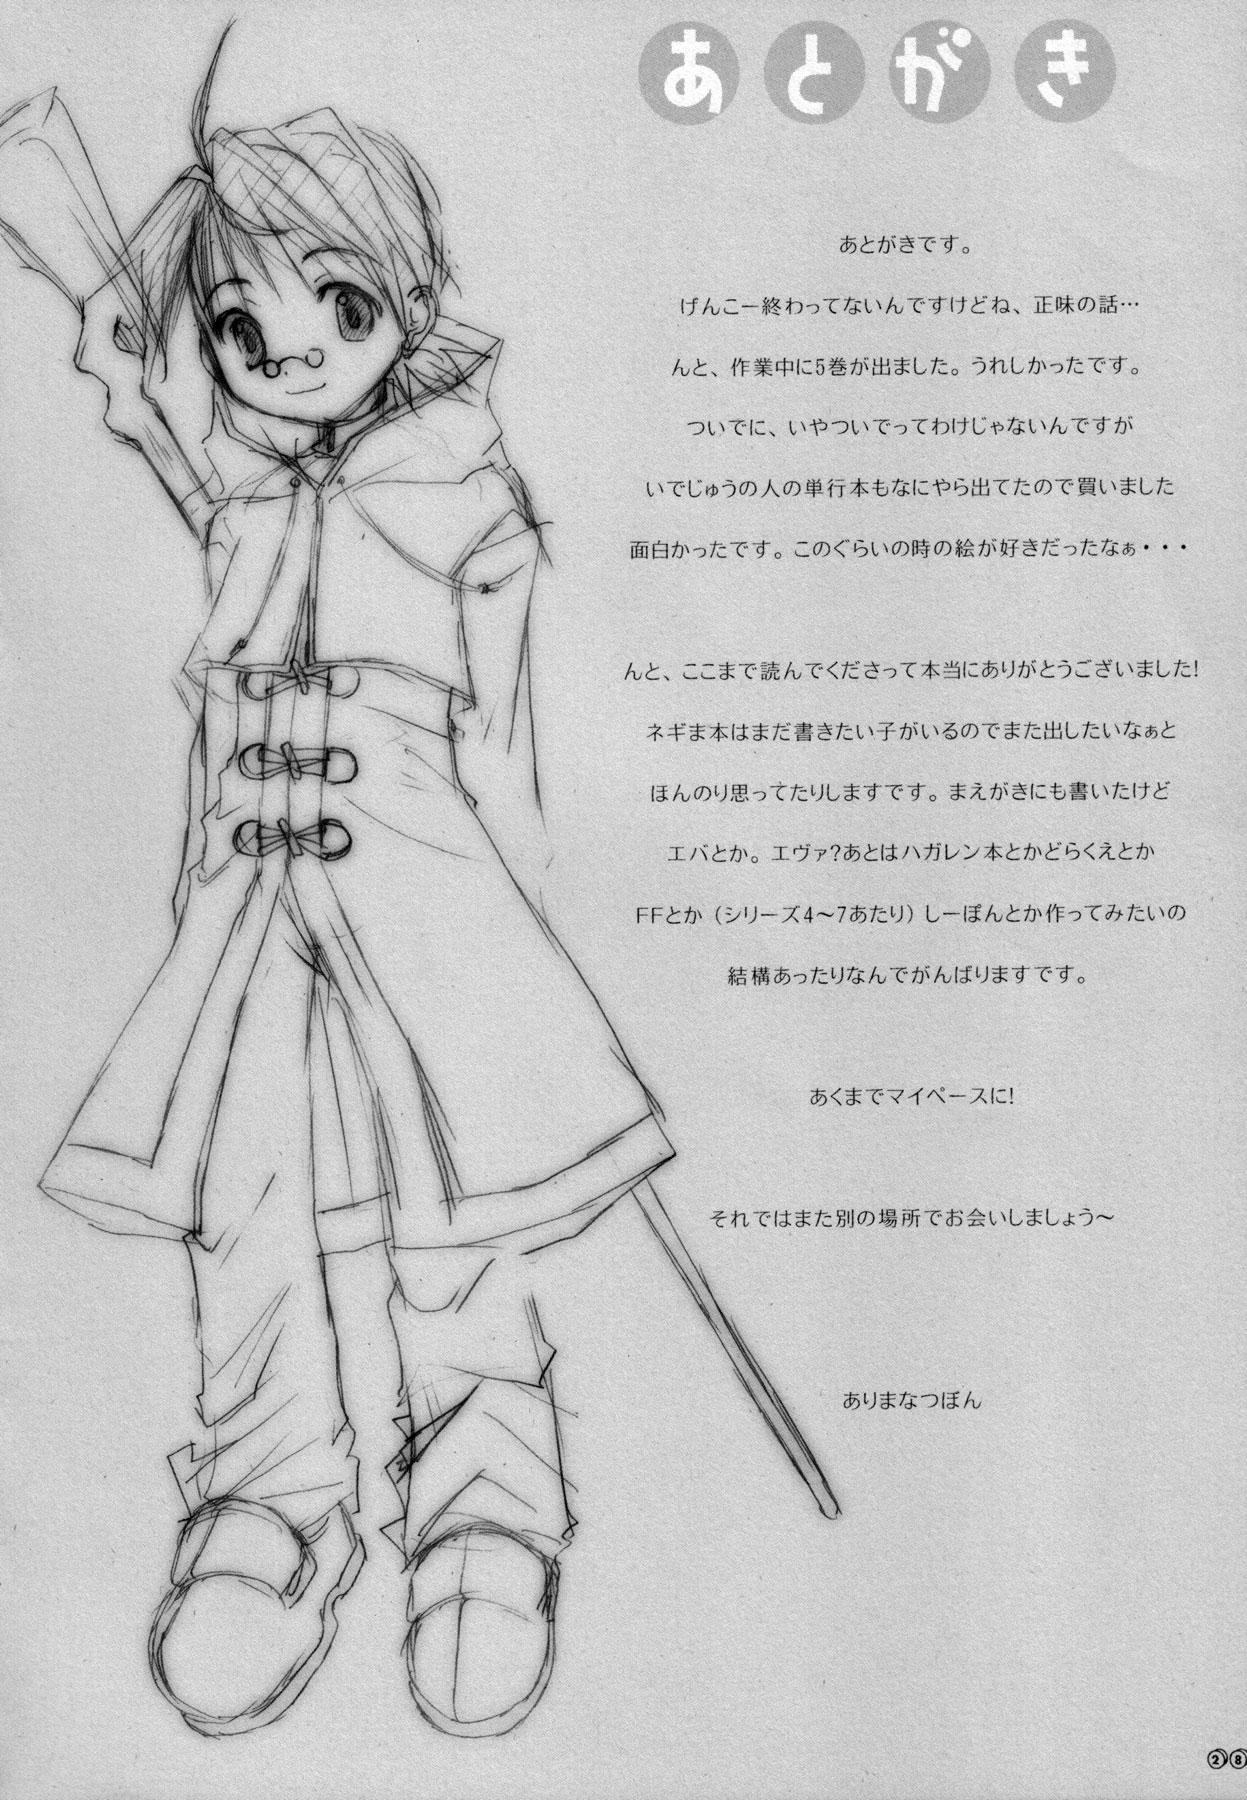 あとがき
あとがきです。
げんこー終わってないんですけどね、正味の話…
んと、作業中に5巻が出ました。うれしかったです。
ついでに、いやついでってわけじゃないんですが
いでじゅうの人の単行本もなにやら出てたので買いました
面白かったです。このぐらいの時の絵が好きだったなぁ・・・
んと、ここまで読んでくださって本当にありがとうございました!
ネギま本はまだ書きたい子がいるのでまた出したいなぁと
ほんのり思ってたりしますです。まえがきにも書いたけど
エバとか。エヴァ?あとはハガレン本とかどらくえとか
FFとか（シリーズ4～7あたり）しーぽんとか作ってみたいの
結構あったりなんでがんばりますです。
あくまでマイペースに!
それではまた別の場所でお会いしましょう～
ありまなつぼん
28